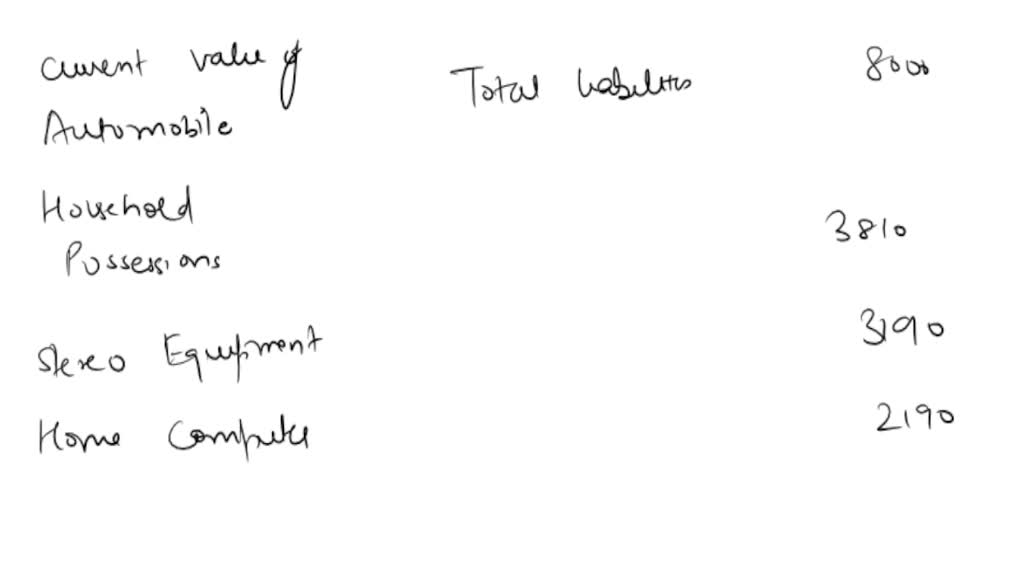 Current value of Total liabilities 8000
Automobile
Household
Possessions 3810
Stereo Equipment 3190
Home Computer 2190